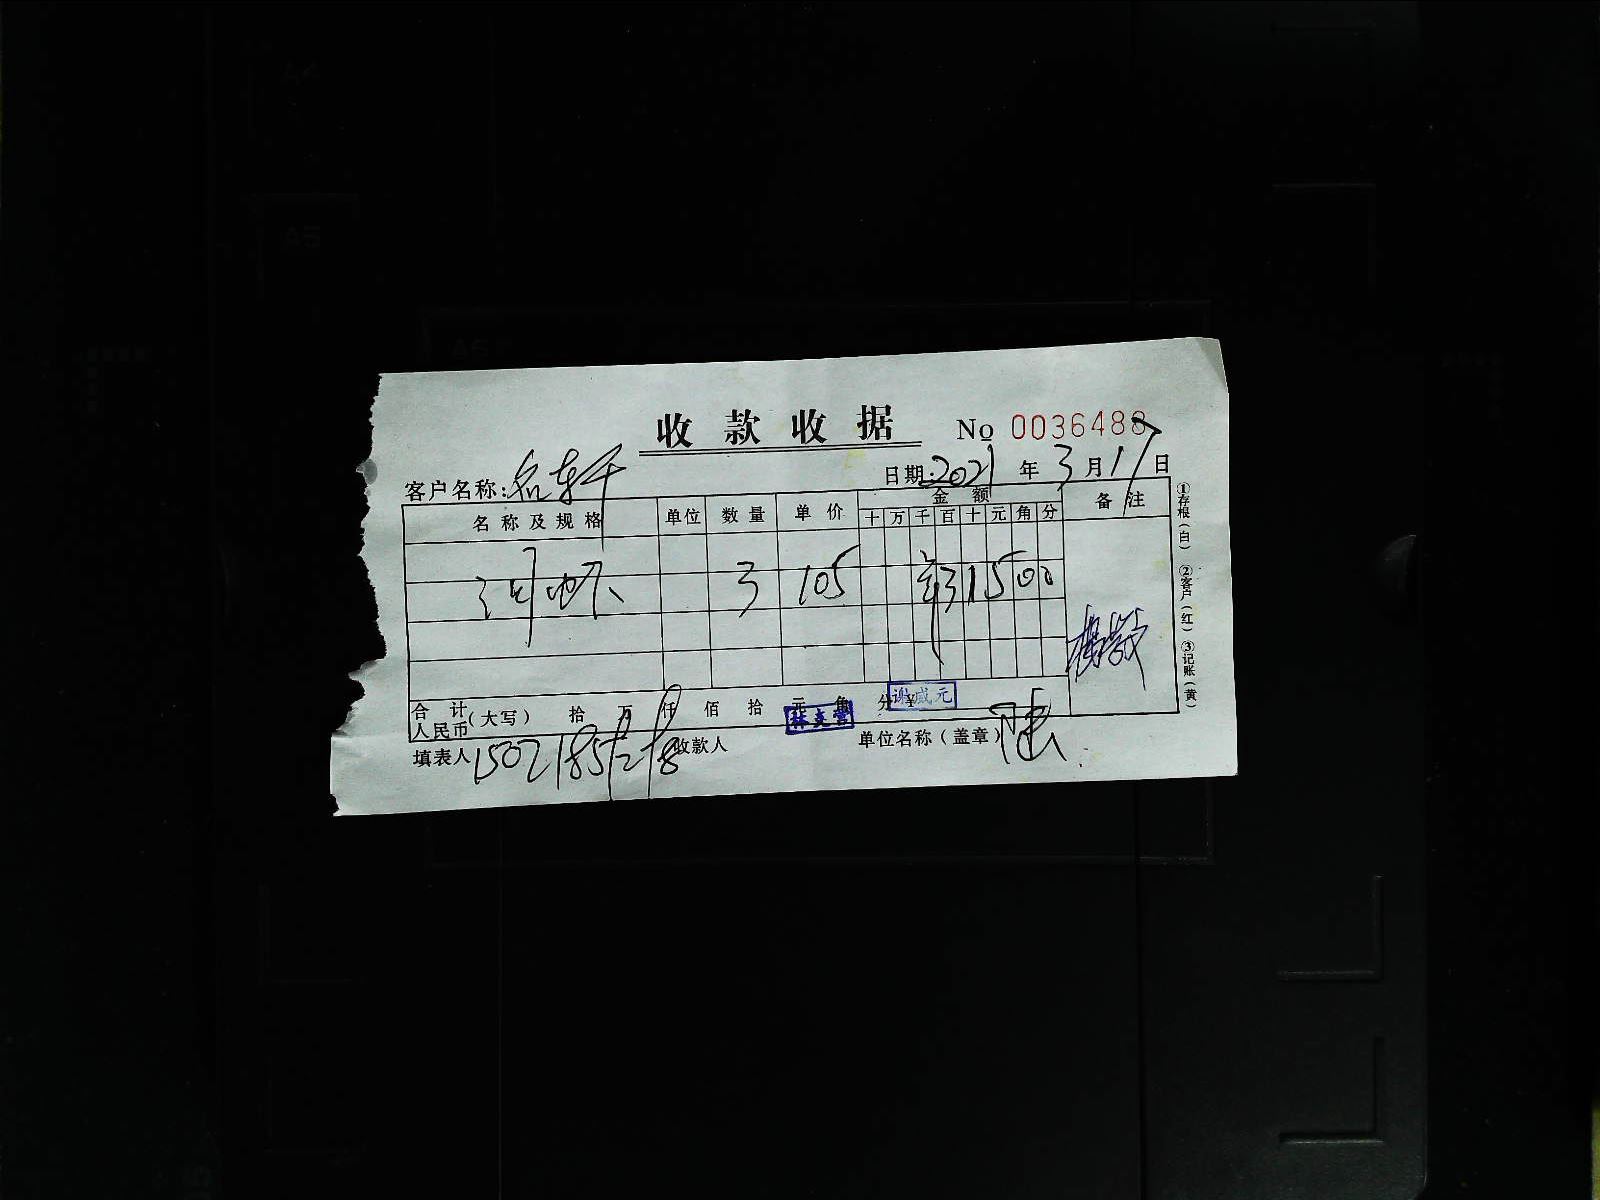 A4
A5
A5
收款收据 No 0036488
客户名称:名轩 日期:2021年3月17日
名称及规格 单位 数量 单价 金额 备注
十万千百十元角分
3 105 ¥31500
合计
人民币(大写) 拾 万 仟 佰 拾 元 角 分 ¥
谢咸元
填表人 15021851218 收款人 单位名称(盖章) 陈
①存根(白) ②客户(红) ③记账(黄)